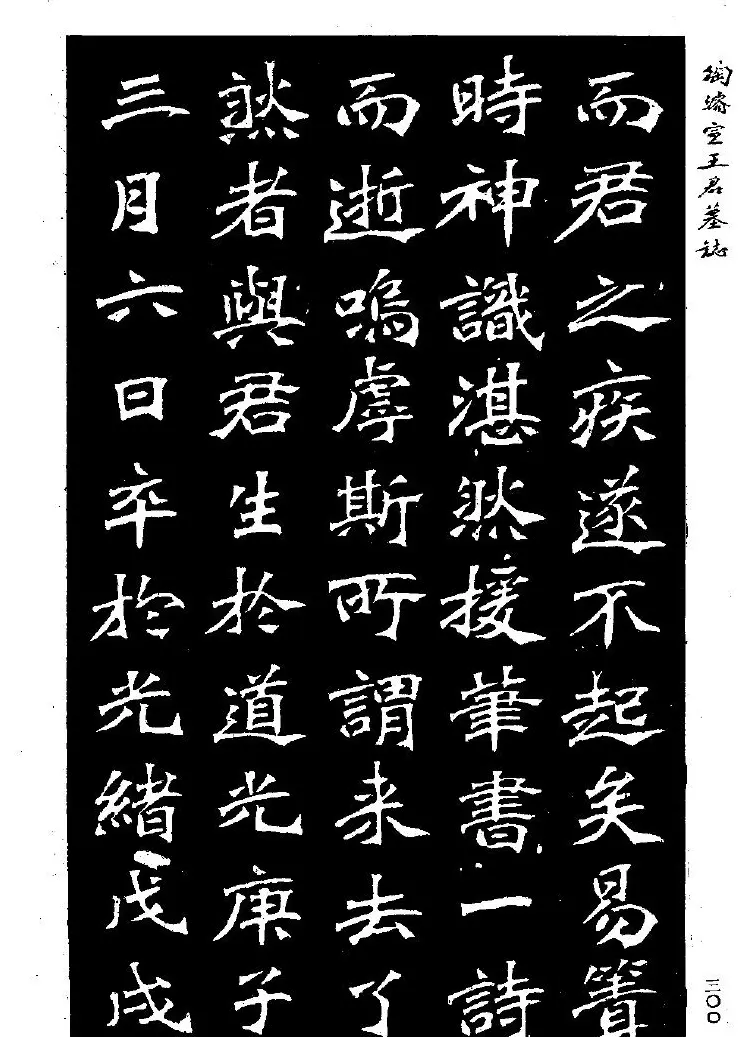 陶濬宣王君墓誌
而君之疾遂不起矣易簀
時神識湛然援筆書一詩
而逝嗚虖斯所謂来去了
然者與君生於道光庚子
三月六日卒於光緒戊戌
三〇〇